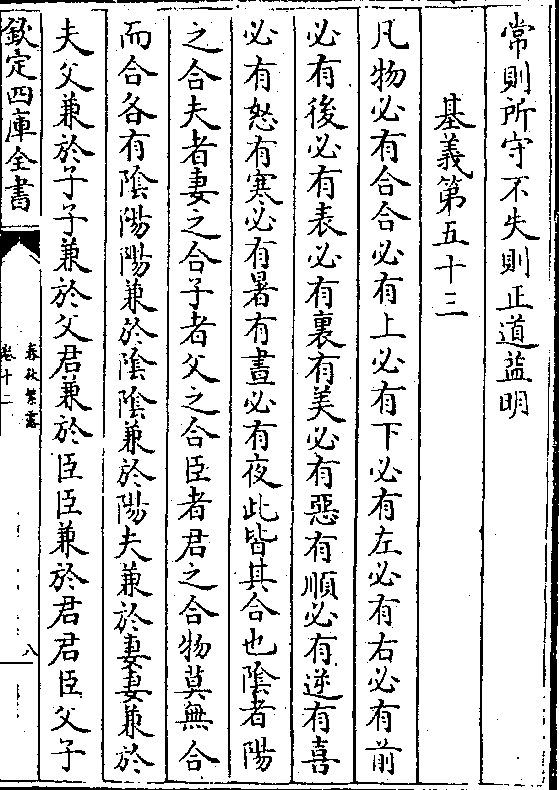 常則所守不失則正道益明
基義第五十三
凡物必有合合必有上必有下必有左必有右必有前
必有後必有表必有裏有美必有惡有順必有逆有喜
必有怒有寒必有暑有晝必有夜此皆其合也陰者陽
之合夫者妻之合子者父之合臣者君之合物莫無合
而合各有陰陽陽兼於陰陰兼於陽夫兼於妻妻兼於
夫父兼於子子兼於父君兼於臣臣兼於君君臣父子
欽定四庫全書
春秋繁露
卷十二
八